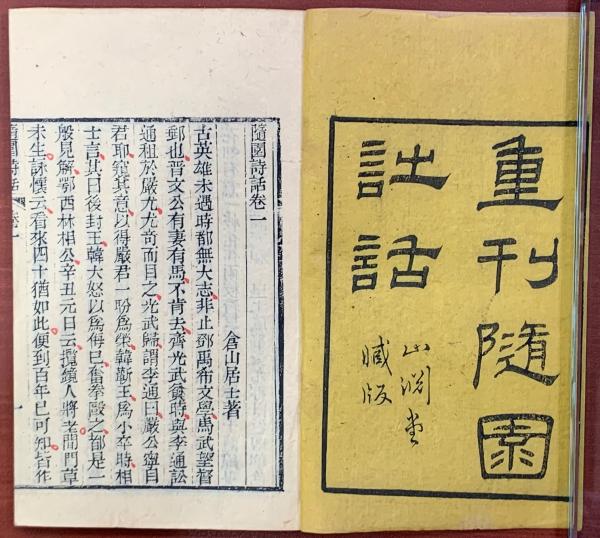 重刊隨園
詩話
山淵堂
臧版
隨園詩話卷一
倉山居士著
古英雄未遇時都無大志非止鄧禹希文學馬武望督
郵也晉文公有妻有馬不肯去齊光武貧時與李通訟
逋租於嚴尤尤奇而目之光武歸謂李通曰嚴公寧目
君耶窺其意以得嚴君一盼爲榮韓蘄王爲小卒時相
士言其日後封王韓大怒以爲侮已奮拳毆之都是一
般見解鄂西林相公辛丑元日云攬鏡人將老開門草
未生詠懷云看來四十猶如此便到百年已可知皆作
隨園詩話 卷一 一